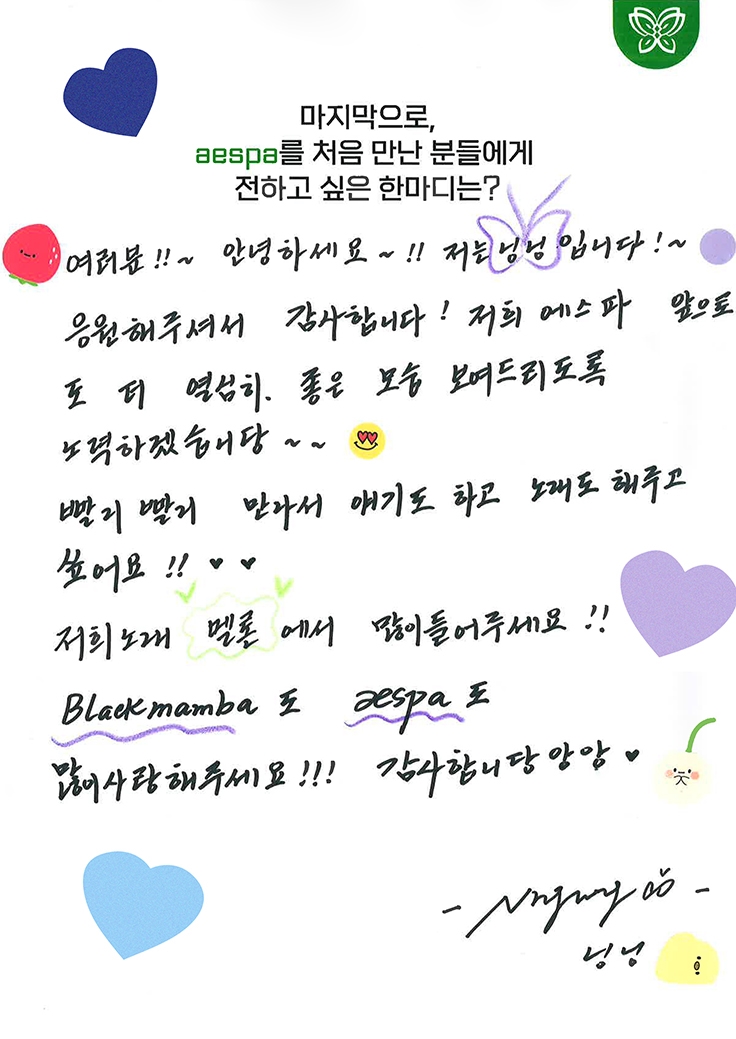 마지막으로,
aespa를 처음 만난 분들에게
전하고 싶은 한마디는?
여러분!!~ 안녕하세요~!! 저는 닝닝 입니다!~
응원해주셔서 감사합니다! 저희 에스파 앞으로
도 더 열심히. 좋은 모습 보여드리도록
노력하겠습니당~~
빨리 빨리 만나서 얘기도 하고 노래도 해주고
싶어요!! ♥ ♥
저희노래 멜론 에서 많이들어주세요!!
Blackmamba 도 aespa 도
많이사랑해주세요!!! 감사합니당앙앙 ♥
- Ningning -
닝닝